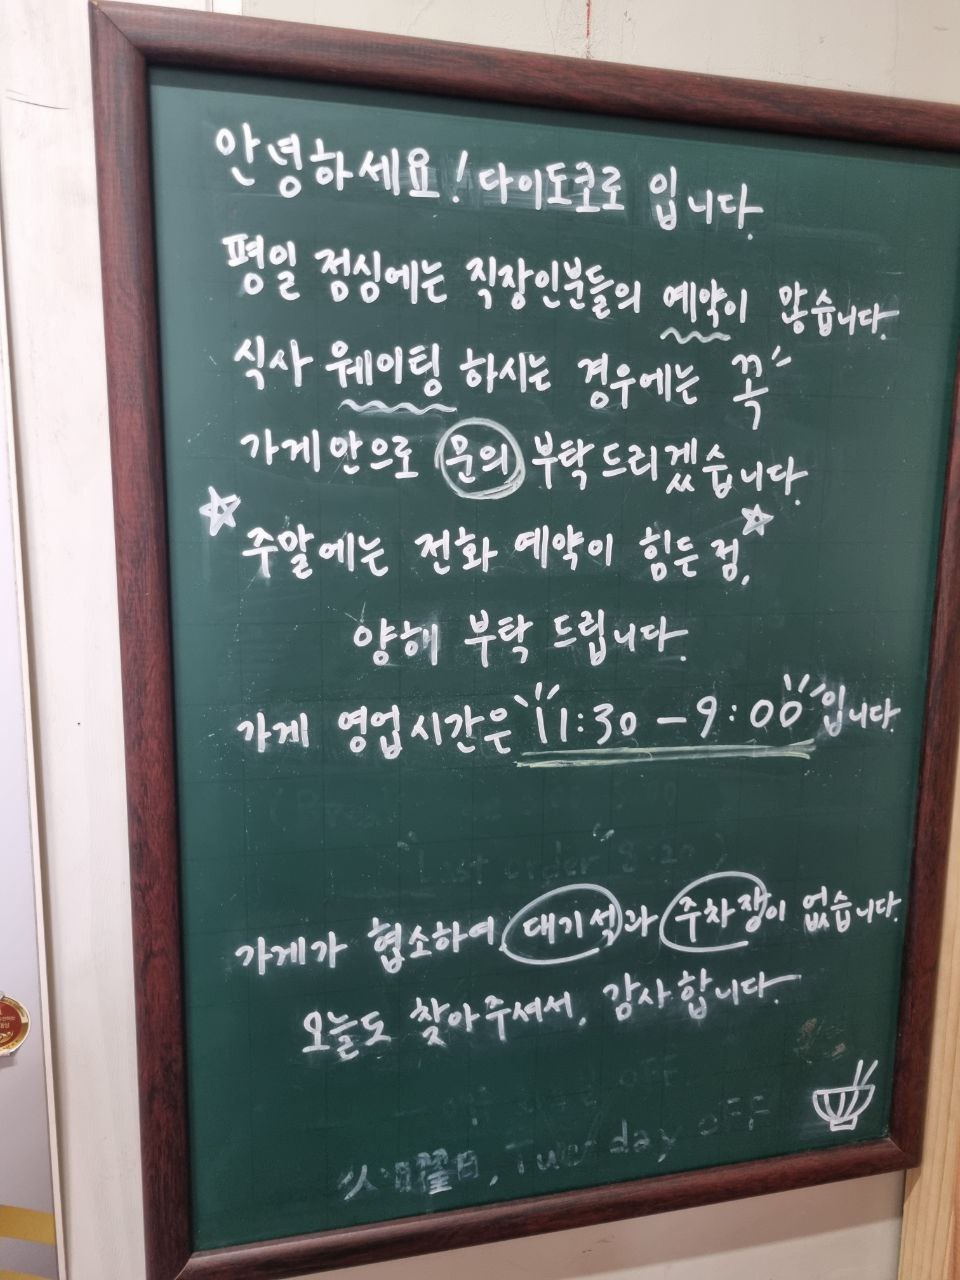 안녕하세요! 다이도코로 입니다.
평일 점심에는 직장인분들의 예약이 많습니다.
식사 웨이팅 하시는 경우에는 꼭
가게안으로 문의 부탁드리겠습니다.
☆주말에는 전화 예약이 힘든점,☆
양해 부탁 드립니다.
가게 영업시간은 11:30 - 9:00 입니다
Last order 8:20)
가게가 협소하여, 대기석과 주차장이 없습니다.
오늘도 찾아주셔서, 감사합니다.
OFF
火曜日, Tuesday OFF